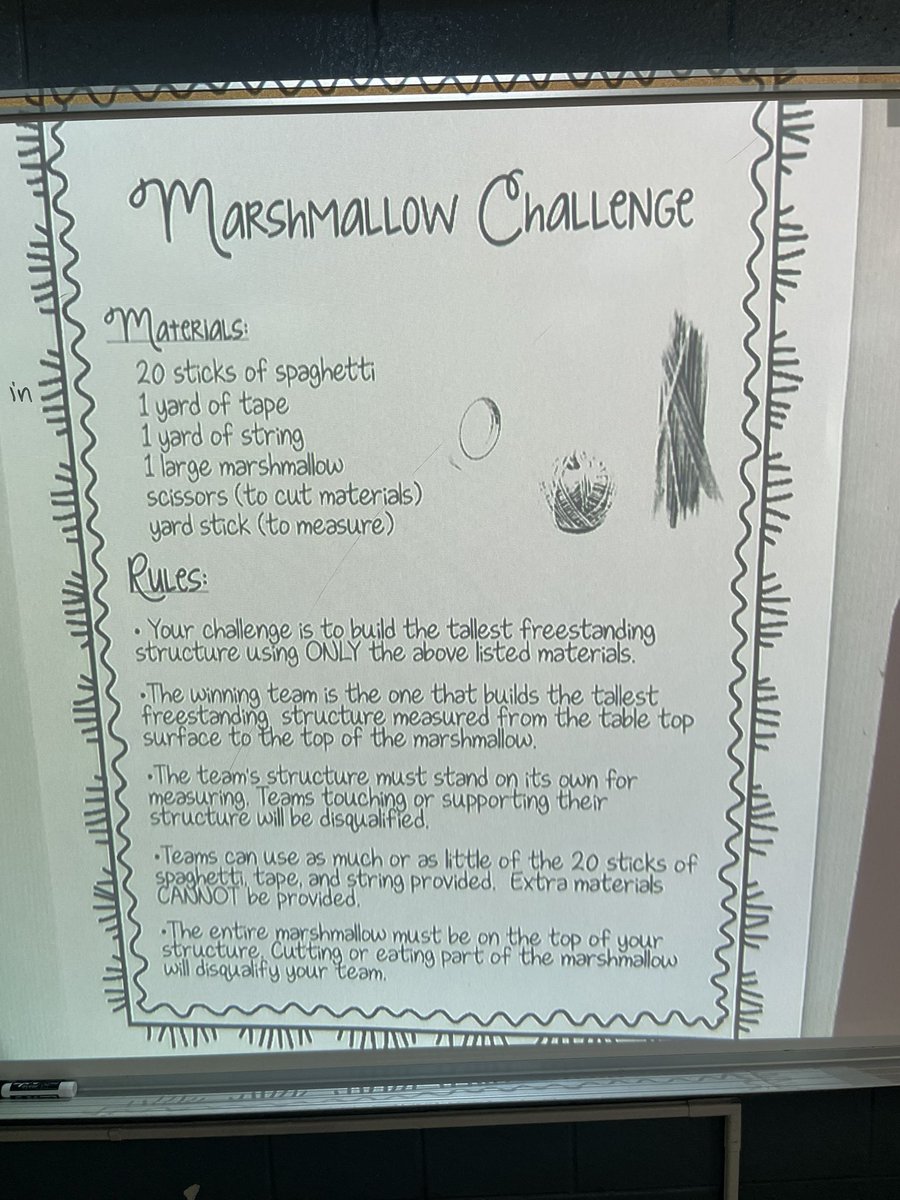 Marshmallow Challenge
Materials:
20 sticks of spaghetti
in
1 yard of tape
1 yard of string
1 large marshmallow
scissors (to cut materials)
yard stick (to measure)
Rules:
• Your challenge is to build the tallest freestanding
structure using ONLY the above listed materials.
•The winning team is the one that builds the tallest
freestanding structure measured from the table top
surface to the top of the marshmallow.
•The team's structure must stand on its own for
measuring. Teams touching or supporting their
structure will be disqualified.
•Teams can use as much or as little of the 20 sticks of
spaghetti, tape, and string provided. Extra materials
CANNOT be provided.
•The entire marshmallow must be on the top of your
structure. Cutting or eating part of the marshmallow
will disqualify your team.